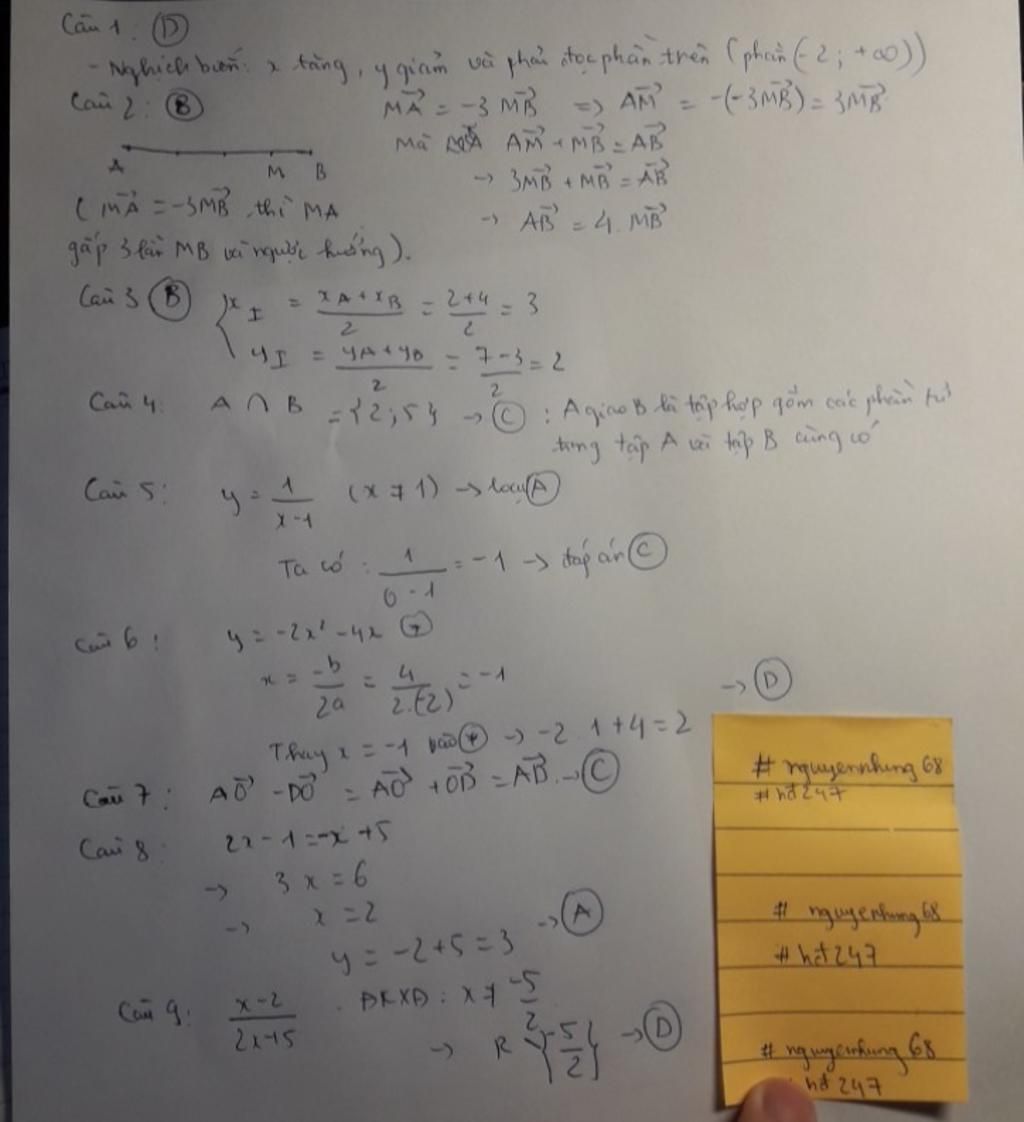 Câu 1: D
- Nghịch biến: x tăng, y giảm và phải đọc phần trên (phần (-2; +∞))
Câu 2: B
A M B
( MA→ = -3MB→ thì MA
gấp 3 lần MB và ngược hướng).
MA→ = -3 MB→ => AM→ = -(-3MB→) = 3MB→
Mà AM→ + MB→ = AB→
-> 3MB→ + MB→ = AB→
-> AB→ = 4. MB→
Câu 3 B { x_I = (x_A + x_B)/2 = (2+4)/2 = 3
y_I = (y_A + y_B)/2 = (7-3)/2 = 2
Câu 4: A ∩ B = {2; 5} -> C : A giao B là tập hợp gồm các phần tử
trong tập A và tập B cùng có
Câu 5: y = 1/(x-1) (x ≠ 1) -> loại A
Ta có : 1/(0-1) = -1 -> đáp án C
Câu 6: y = -2x² - 4x (*)
x = -b/2a = 4/(2.(-2)) = -1 -> D
Thay x = -1 vào (*) -> -2.1+4 = 2
Câu 7: AO→ - DO→ = AO→ + OB→ = AB→. -> C
Câu 8: 2x-1 = -x+5
-> 3x = 6
-> x = 2
y = -2+5 = 3 -> A
Câu 9: (x-2)/(2x+5) . ĐKXĐ: x ≠ -5/2
-> R \ {-5/2} -> D
# nguyennhung68
# hđ247
# nguyenhung68
# hđ247
# nguyenhung 68
hđ 247